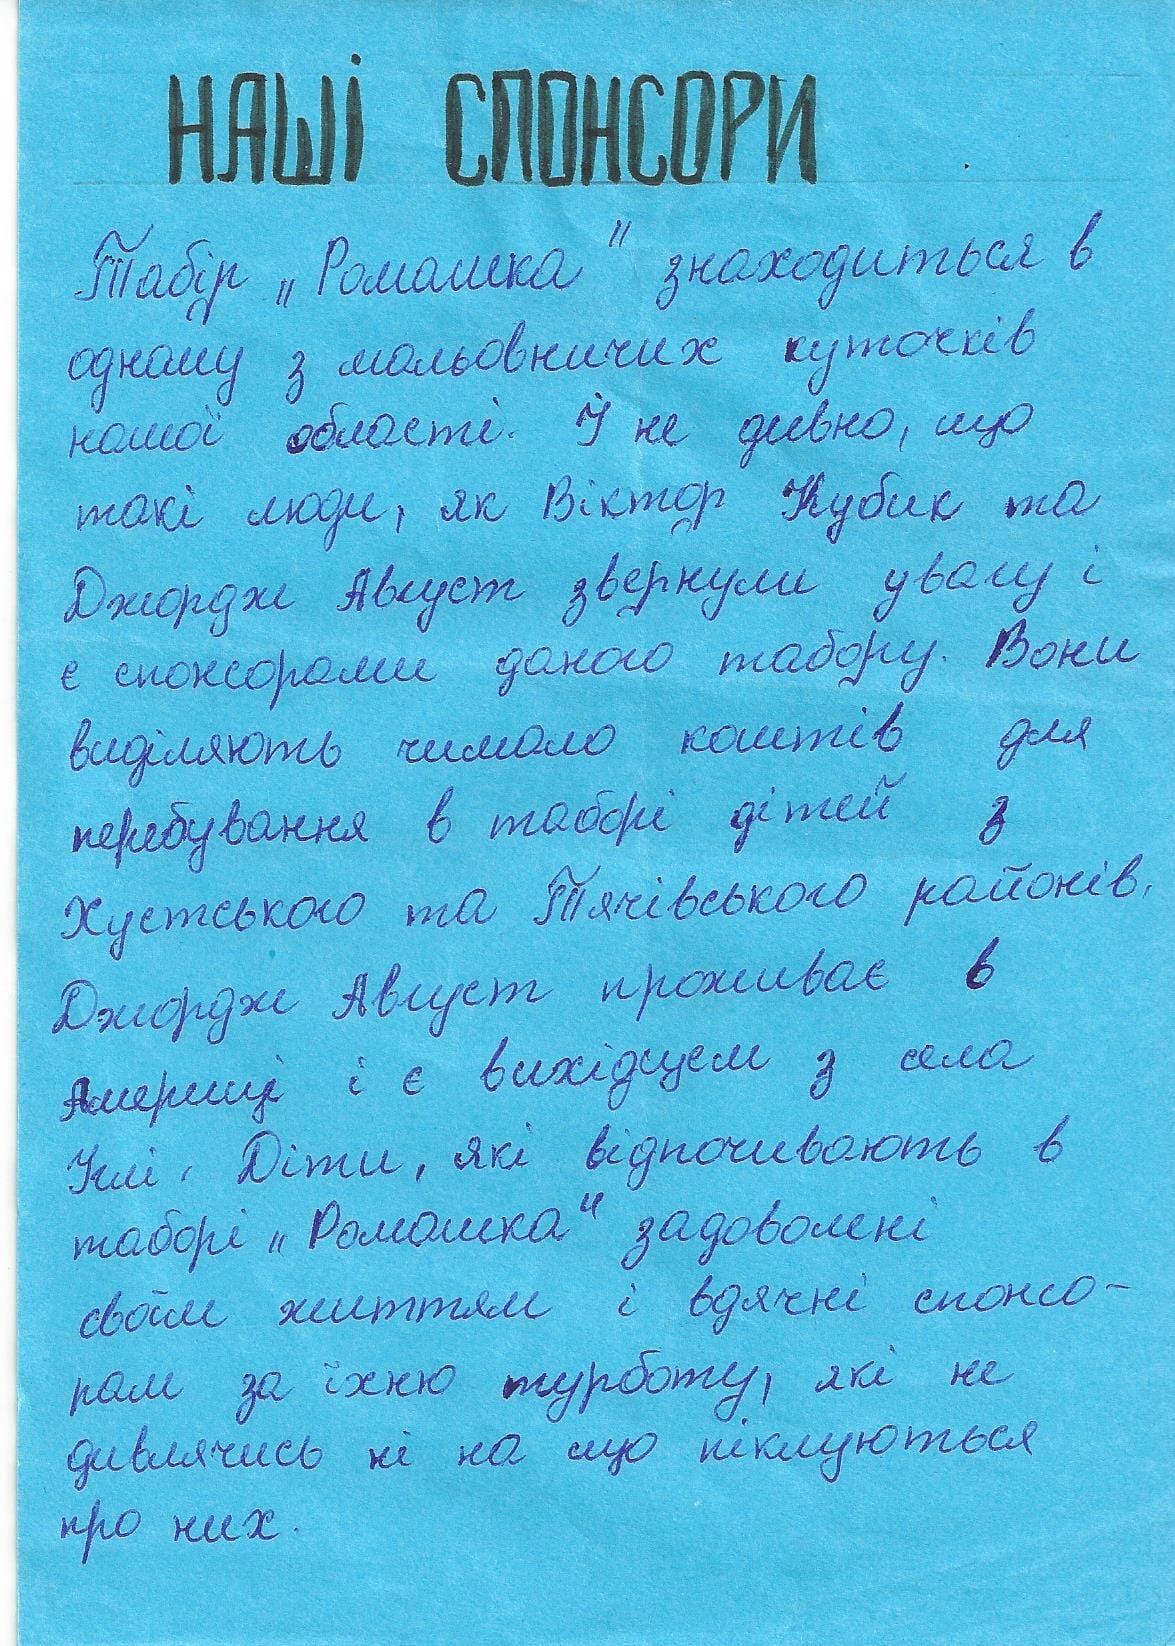 НАШІ СПОНСОРИ
Табір „Ромашка" знаходиться в
одному з мальовничих куточків
нашої області. І не дивно, що
такі люди, як Віктор Кубик та
Джордж Август звернули увагу і
є спонсорами даного табору. Вони
виділяють чимало коштів для
перебування в таборі дітей з
Хустського та Тячівського районів.
Джордж Август проживає в
Америці і є вихідцем з села
Ілі. Діти, які відпочивають в
таборі „Ромашка" задоволені
своїм життям і вдячні спонсо-
рам за їхню турботу, які не
дивлячись ні на що піклуються
про них.